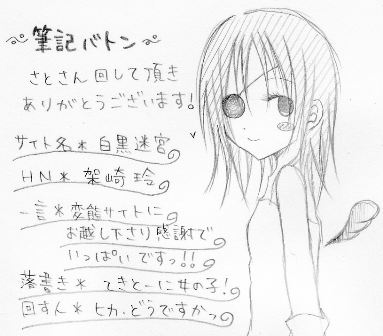 ～筆記バトン～
さとさん回して頂き
ありがとうございます!
サイト名＊白黒迷宮
HN＊架崎玲
一言＊変態サイトに
お越し下さり感謝で
いっぱいですっ!!
落書き＊てきとーに女の子!
回すん＊ヒカ.どうですかっ